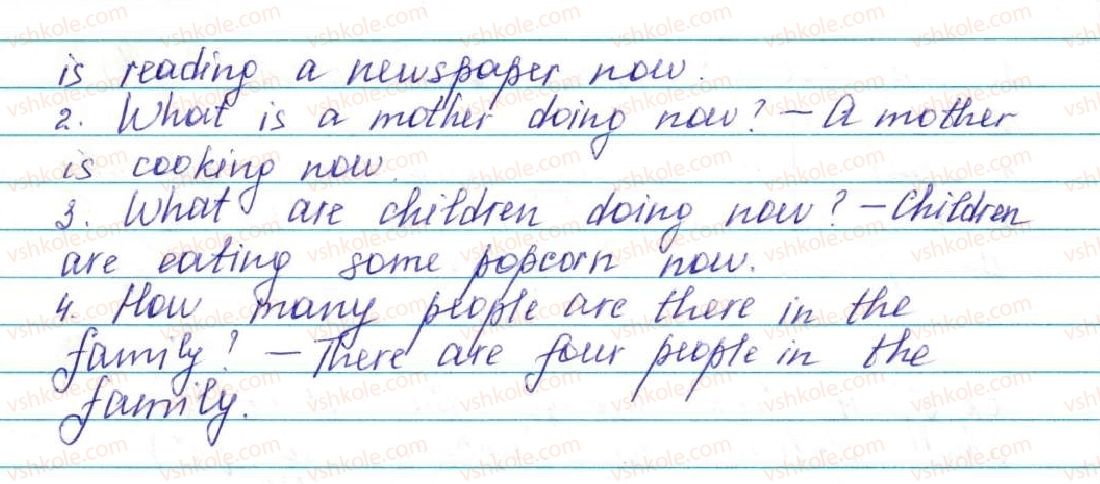 is reading a newspaper now.
2. What is a mother doing now? – A mother
is cooking now.
3. What are children doing now? – Children
are eating some popcorn now.
4. How many people are there in the
family? – There are four people in the
family.